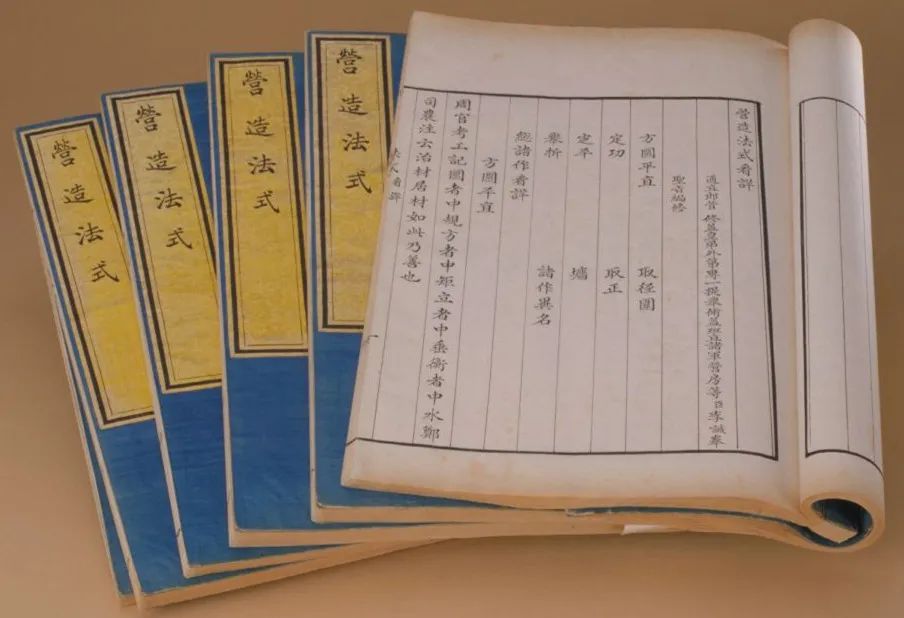 營造法式
營造法式
營造法式
營造法式
營造法式看詳
通直郎管修蓋皇弟外第專一提舉修蓋班直諸軍營房等臣李誡奉
聖旨編修
方圓平直 取徑圍
定功 取正
定平 墻
舉折 諸作異名
總諸作看詳
方圓平直
周官考工記圓者中規方者中矩立者中垂衡者中水鄭
司農注云治材居材如此乃善也